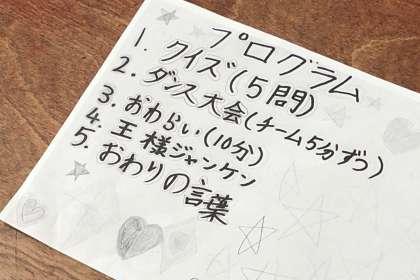 プログラム
1. クイズ(5問)
2. ダンス大会(チーム5分ずつ)
3. おわらい(10分)
4. 王様ジャンケン
5. おわりの言葉